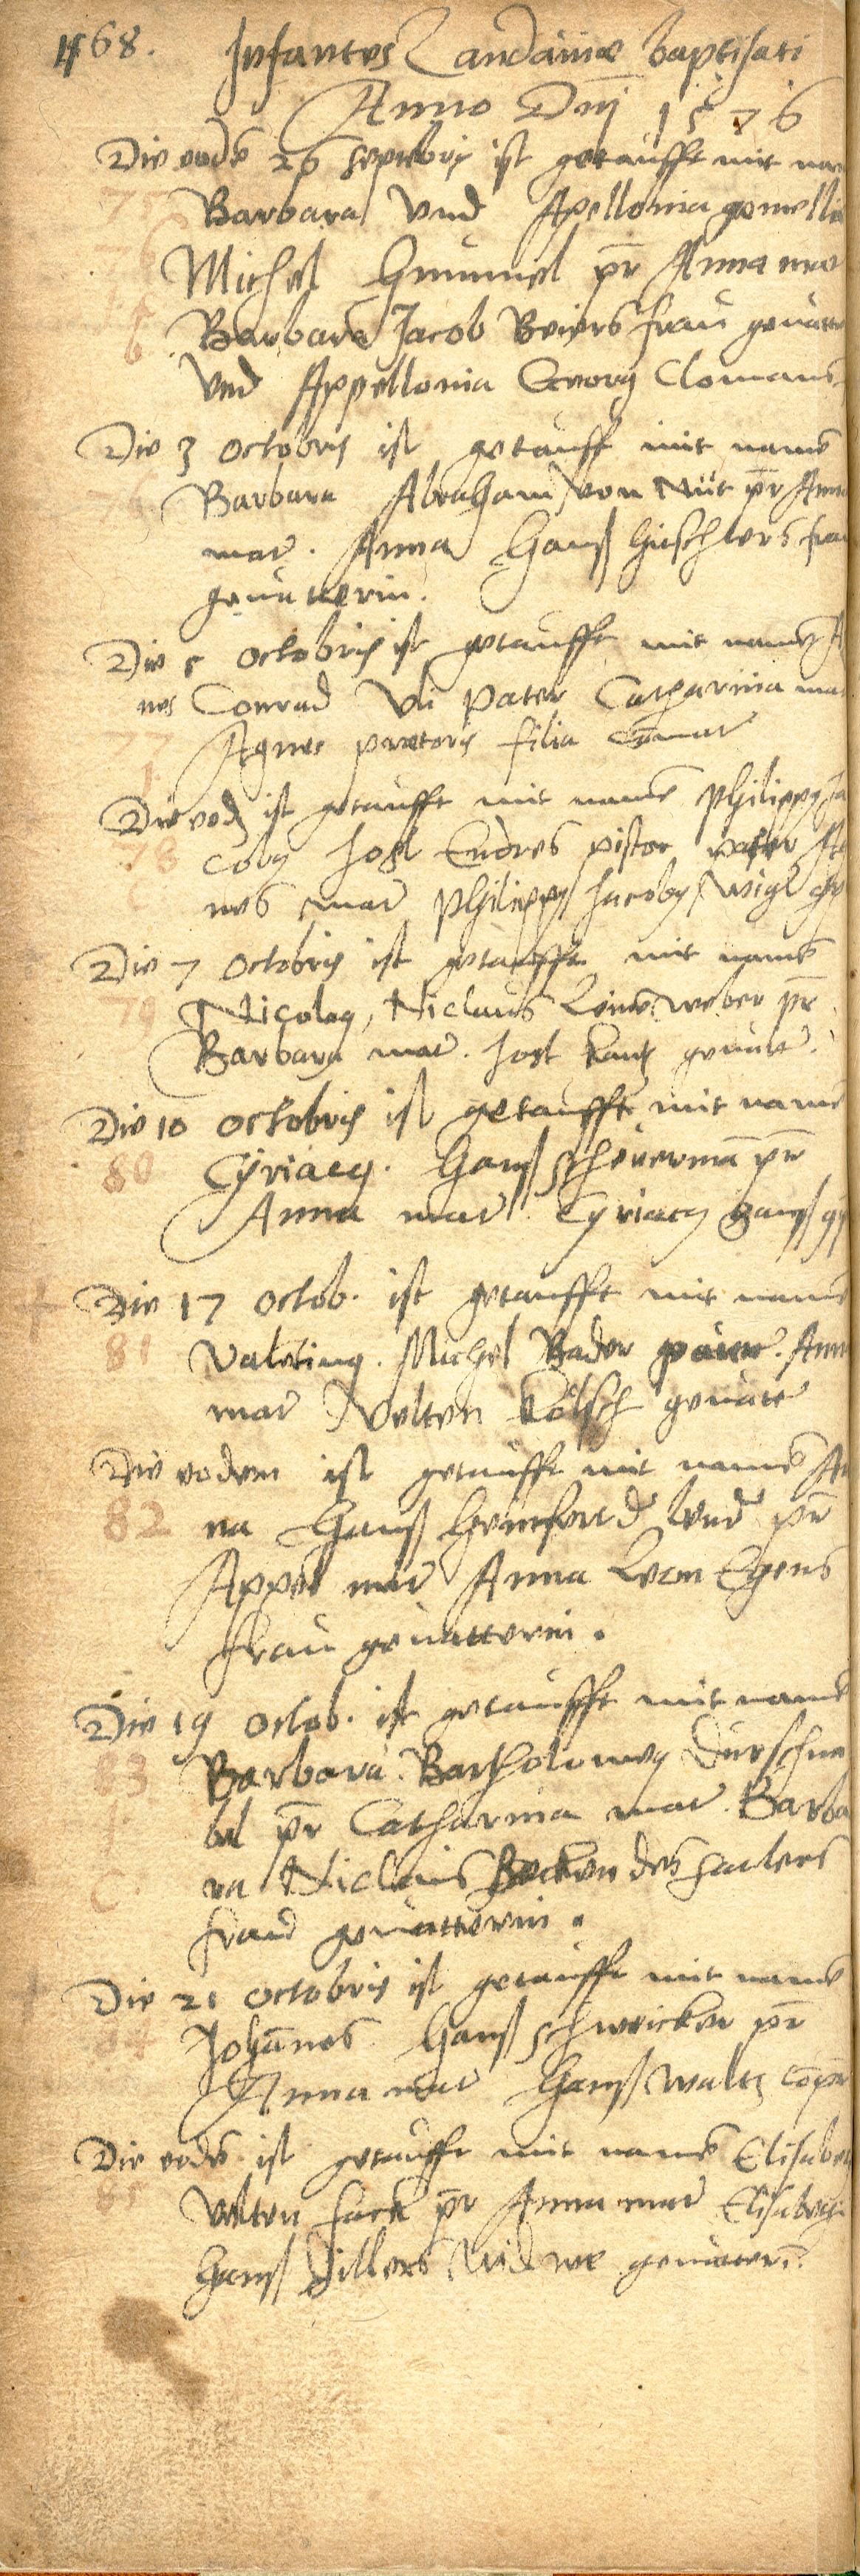 468. Infantes Landauiae baptisati
Anno Dnj 1576
Die eodē 26 septēbris ist getaufft mit nam
75 Barbara vnd Apellonia gemelli
76
Michel pr̄ Anna
Barbara Jacob Beiers frau geuatt
vnd Appellonia Georg Clomans
Die 3 octobris ist getaufft mit namē
76 Barbara Abraham von pr̄ Anna
mat̄. Anna Hanß frau
geuatterin.
Die 5 octobris ist getaufft mit namē A
nes Conrad Vli pater Catharina mat
77 Agnes praetoris filia
Die eod ist getaufft mit namē Philippus Ja
78 cobus Jost Endres pistor pater
nes mat̄ Philippus Jacobus
Die 7 octobris ist getaufft mit namē
79 Nicolaus, Niclaus Linē weber pr̄
Barbara mat̄. Jost geuatt̄.
Die 10 octobris ist getaufft mit namē
80 Cÿriacus. Hanß scheuermā pr̄
Anna mat̄. Cyriacus
Die 17 octob. ist getaufft mit namē
81 Valetinus. Michel Bader pater. Ann
mat̄ Velten Kölsch geuatt̄
Die eodem ist getaufft mit namē An
82 na Hanß pr̄
Appel mat̄ Anna
frau geuatterin.
Die 19 octob. ist getaufft mit namē
83 Barbara. Bartholomeus Durschna
bel pr̄ Catharina mat̄. Barba
ra Niclaus Becken des sailers
frau geuatterin.
Die 21 octobris ist getaufft mit namē
84 Johānes. Hanß schweicker pr̄
Anna mat̄ Hanß Waltz
Die eodē ist getaufft mit namē Elisabet
85 Velten fack pr̄ Anna mat̄ Elisabeth
Hanß Dillers Widwe geuatterī.